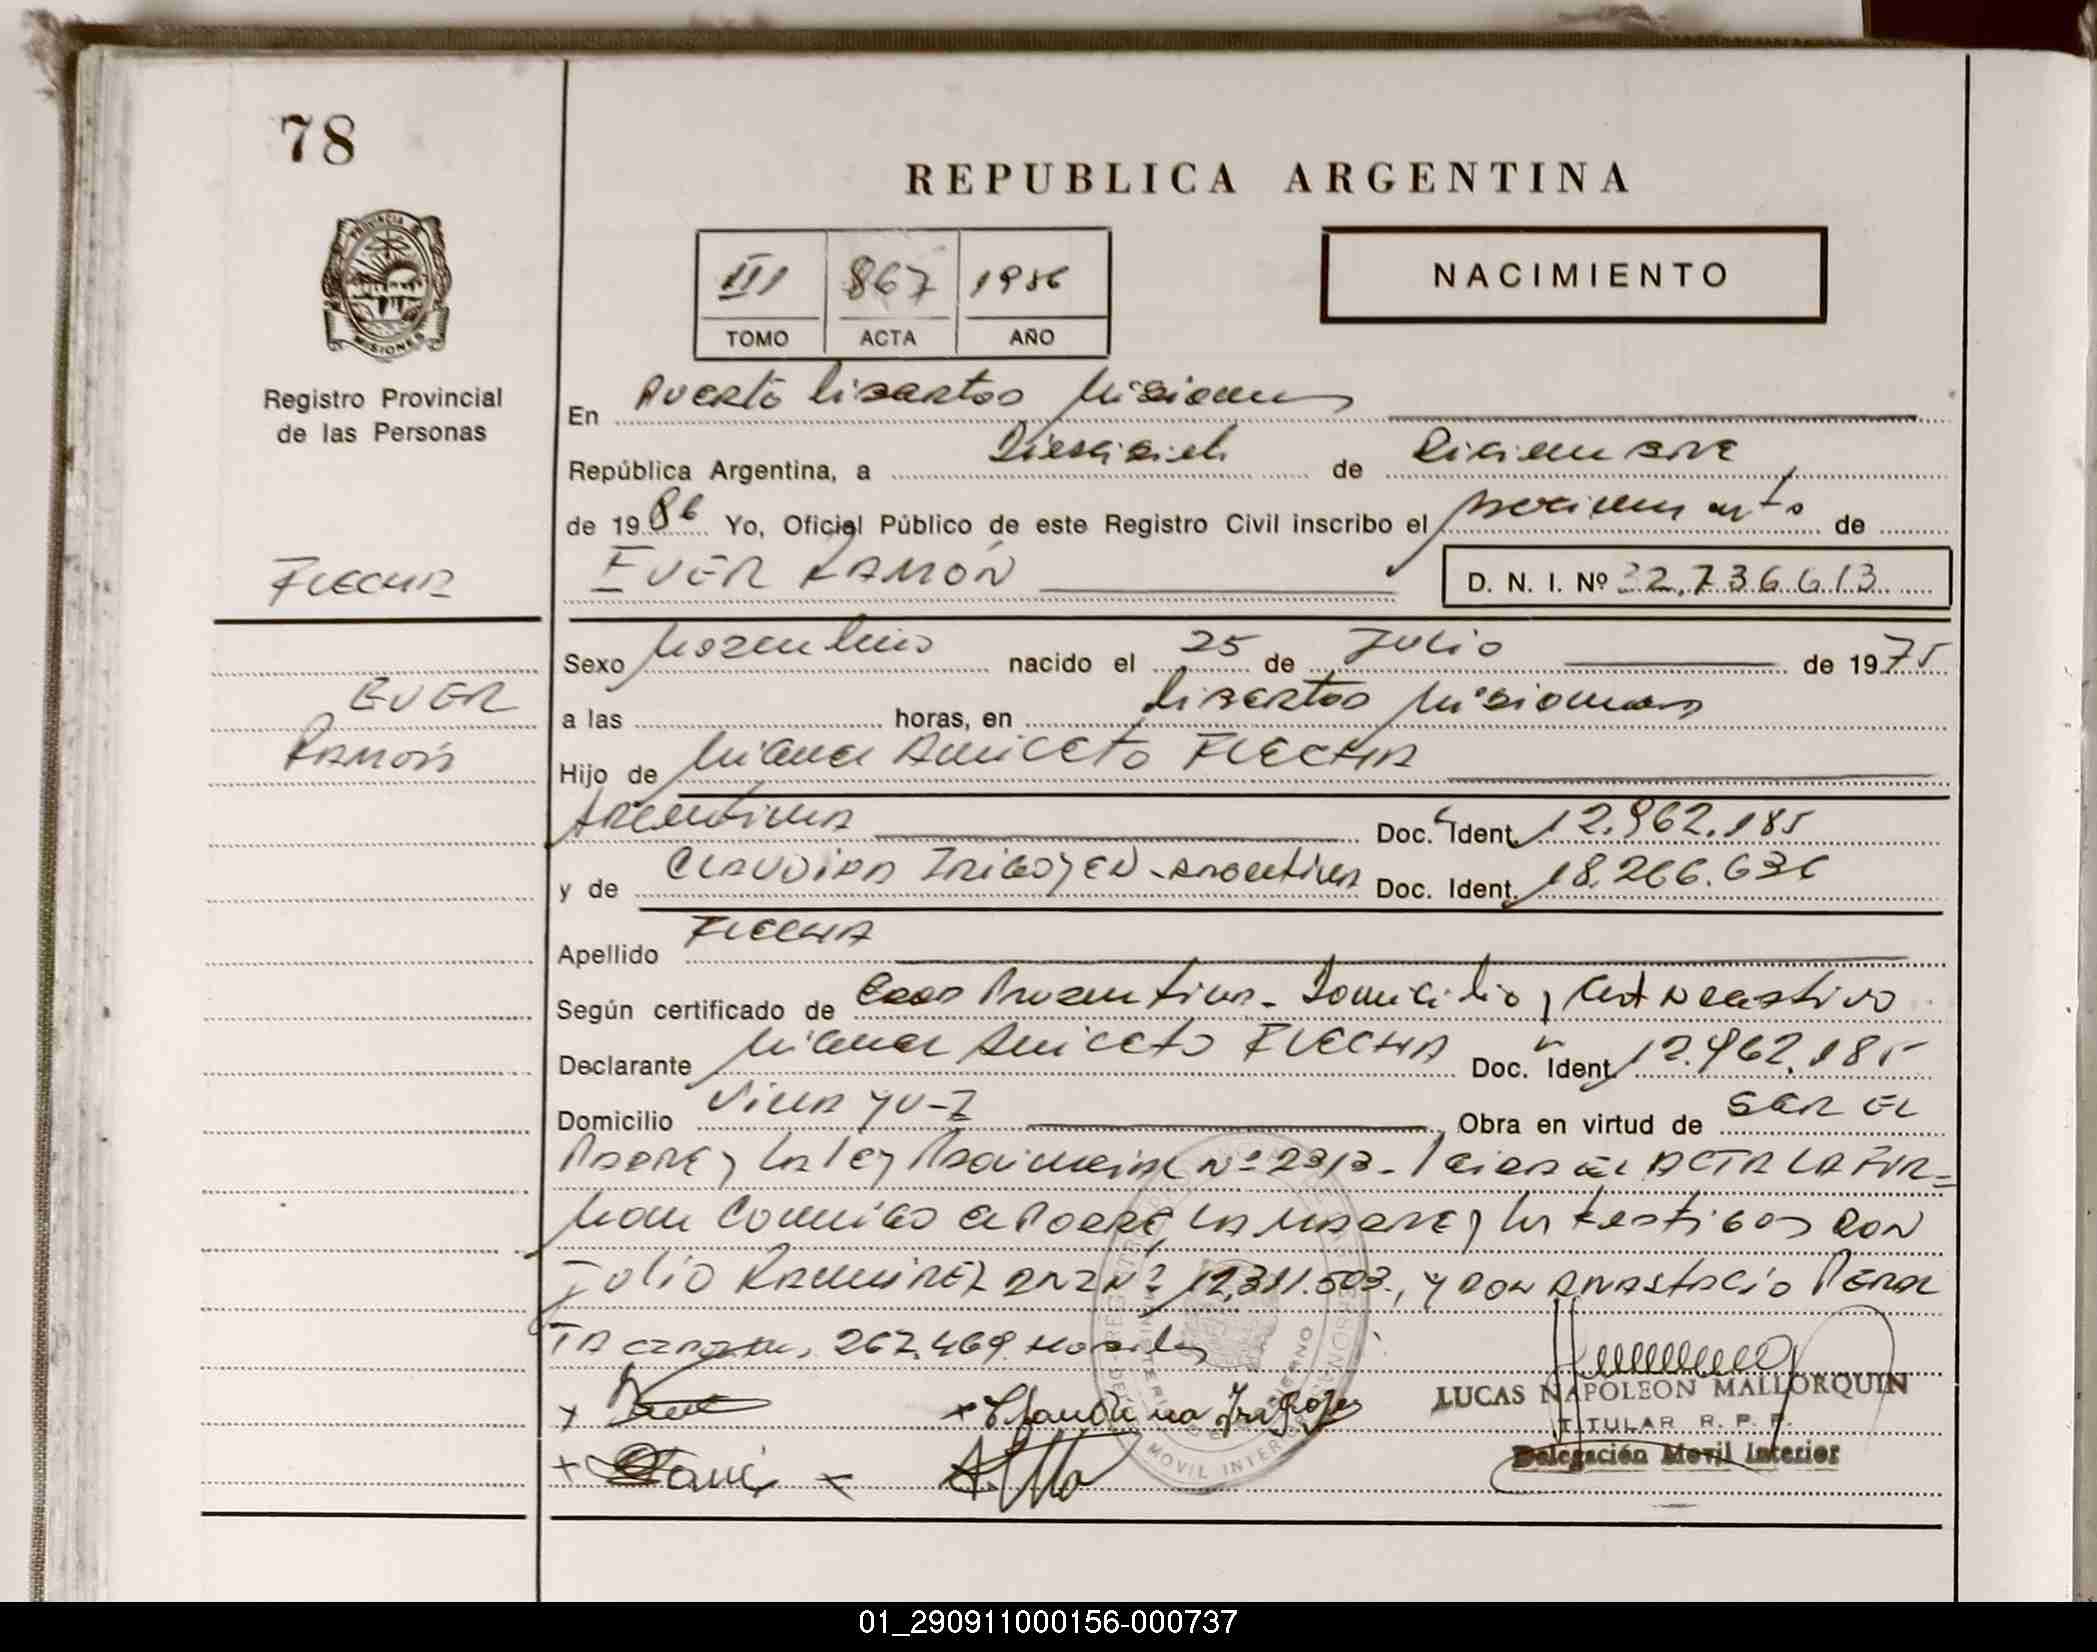 78
REPUBLICA ARGENTINA
PROVINCIA DE MISIONES
Registro Provincial
de las Personas
III 867 1986
TOMO ACTA AÑO
NACIMIENTO
En Puerto Libertad Misiones
República Argentina, a Diecisiete de Diciembre
de 1986 Yo, Oficial Público de este Registro Civil inscribo el nacimiento de
FLECHA
EVER RAMÓN
D. N. I. Nº 32.736.613
Sexo Masculino nacido el 25 de Julio de 1975
EVER
a las horas, en Libertad Misiones
RAMÓN
Hijo de Miguel Aniceto FLECHA
Argentina Doc. Ident. 12.962.185
y de Irigoyen - Argentina Doc. Ident. 18.266.636
Apellido FLECHA
Según certificado de Domicilio y
Declarante Miguel Aniceto FLECHA Doc. Ident. 12.962.185
Domicilio Obra en virtud de SER EL
PADRE y la ley Provincial Nº 2313 - Leida EL ACTA LA FIR=
man Conmigo el Padre, LA MADRE y los testigos DON
Julio RAMIREZ DNI Nº y DON ANASTACIO PERAL
TA 267.469
Claudina Irigoyen
LUCAS NAPOLEON MALLORQUIN
TITULAR R. P. P.
Delegación Movil Interior
MOVIL INTERIOR
01_290911000156-000737